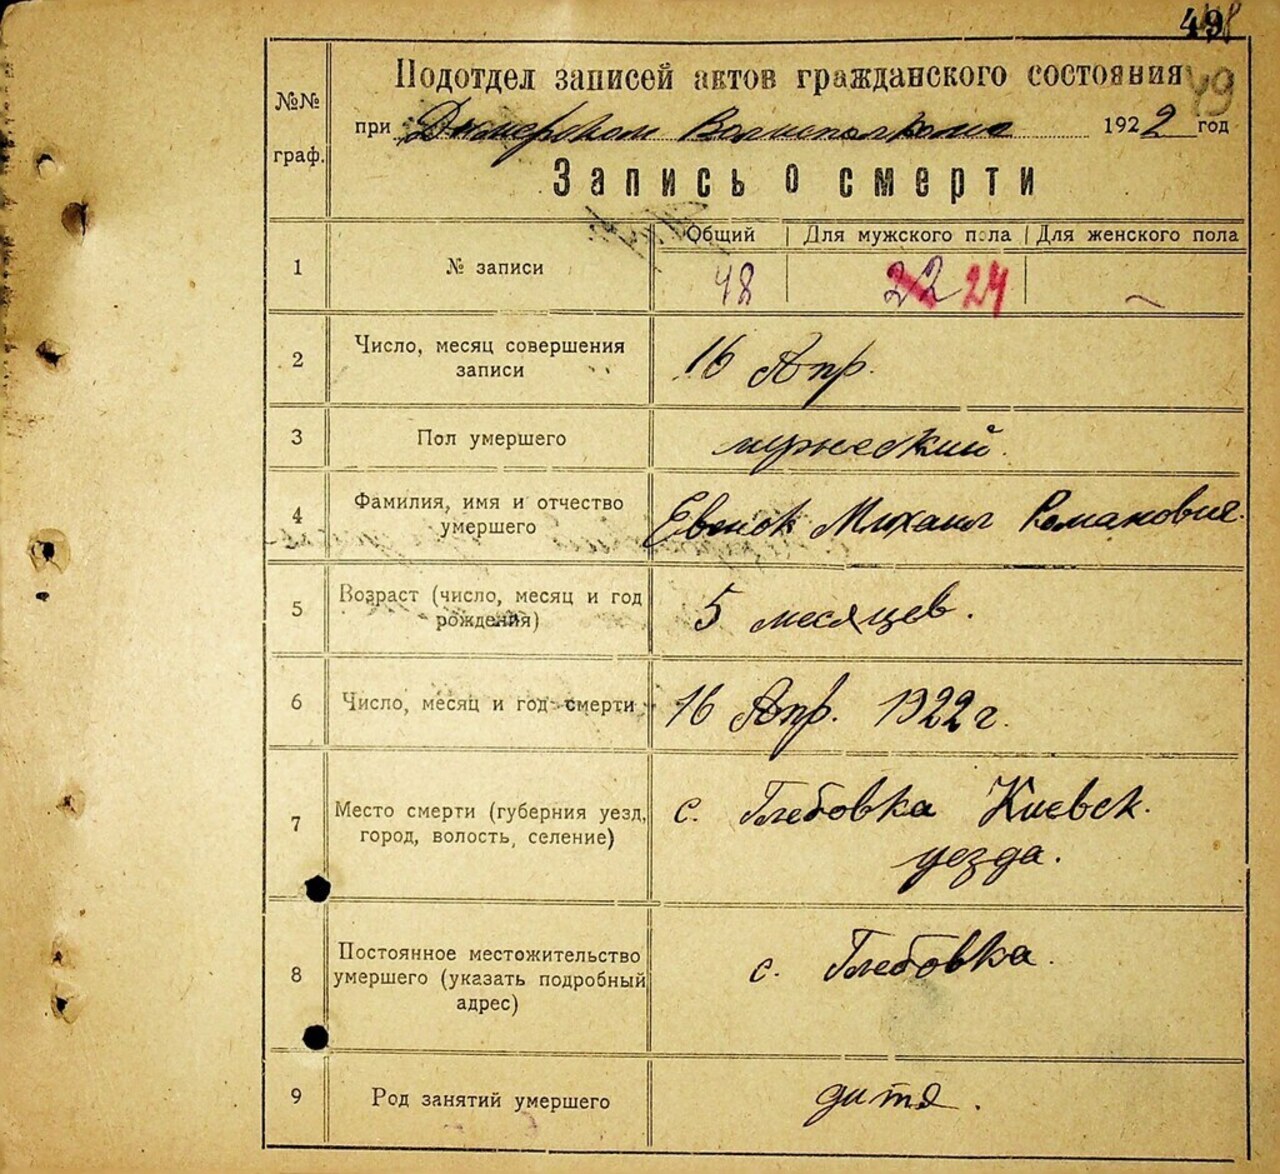 49
Подотдел записей актов гражданского состояния
№№ граф.
при Дымерском Волисполкоме 1922 год
Запись о смерти
Общий Для мужского пола Для женского пола
1 № записи 48 22 24 —
2 Число, месяц совершения записи 16 Апр.
3 Пол умершего мужеский.
4 Фамилия, имя и отчество умершего Евенок Михаил Романович.
5 Возраст (число, месяц и год рождения) 5 месяцев.
6 Число, месяц и год смерти 16 Апр. 1922 г.
7 Место смерти (губерния уезд, город, волость, селение) с. Глебовка Киевск. уезда.
8 Постоянное местожительство умершего (указать подробный адрес) с. Глебовка.
9 Род занятий умершего дитя.